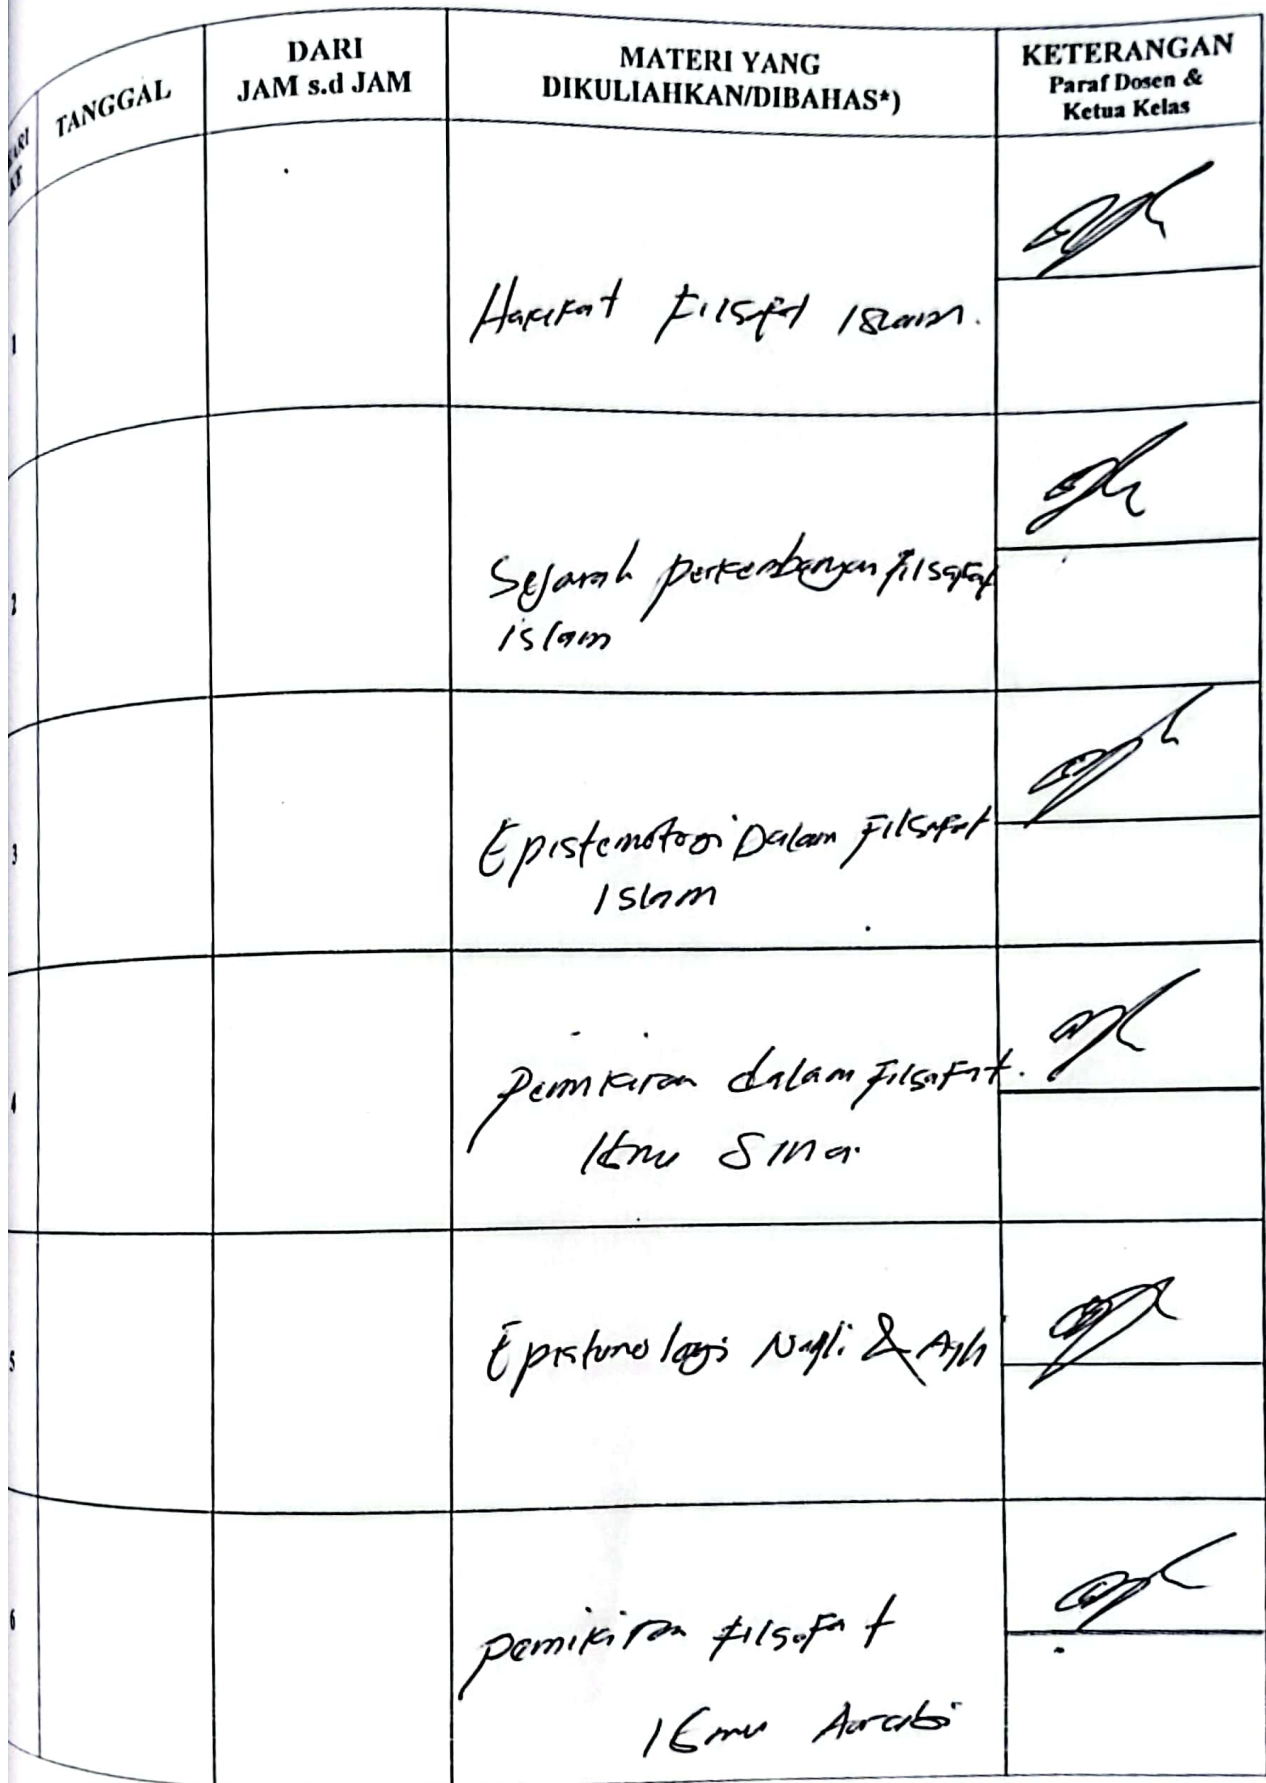 HARI KE
TANGGAL
DARI
JAM s.d JAM
MATERI YANG
DIKULIAHKAN/DIBAHAS*)
KETERANGAN
Paraf Dosen &
Ketua Kelas
1
Hakikat Filsafat Islam.
2
Sejarah perkembangan filsafat
islam
3
Epistemologi Dalam Filsafat
Islam
4
pemikiran dalam Filsafat.
Ibnu Sina
5
Epistemologi Naqli & Aqli
6
pemikiran filsafat
Ibnu Aarabi